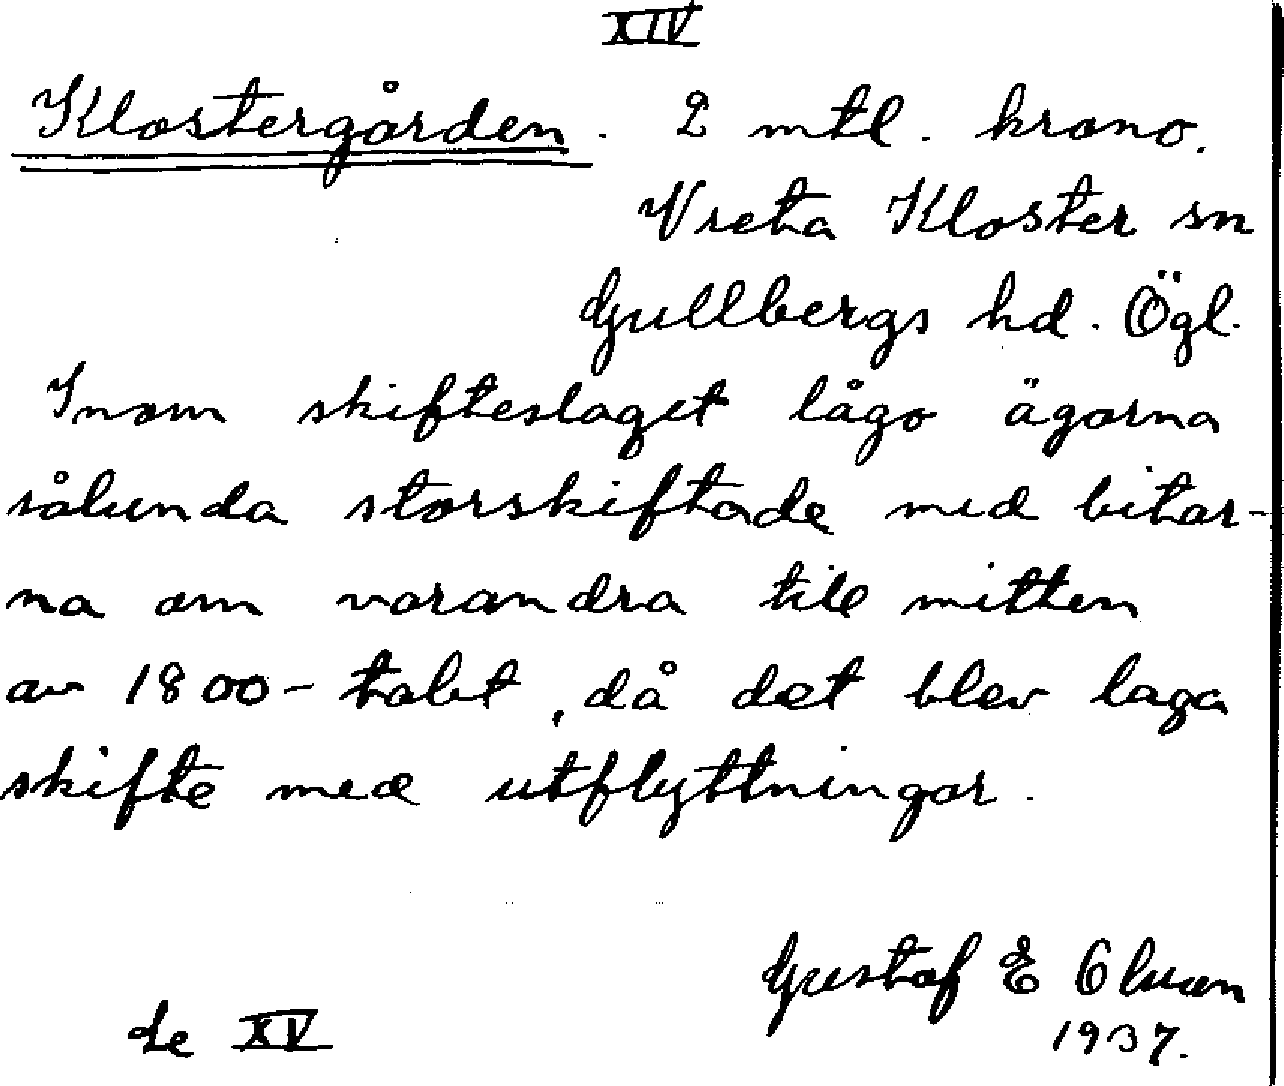 XIV
Klostergården. 2 mtl. krono.
Vreta Kloster sn
Gullbergs hd. Ögl.
Inom skifteslaget lågo ägorna
sålunda storskiftade med bitar-
na om varandra till mitten
av 1800-talet, då det blev laga
skifte med utflyttningar.
Gustaf E Olsson
1937.
Se XV